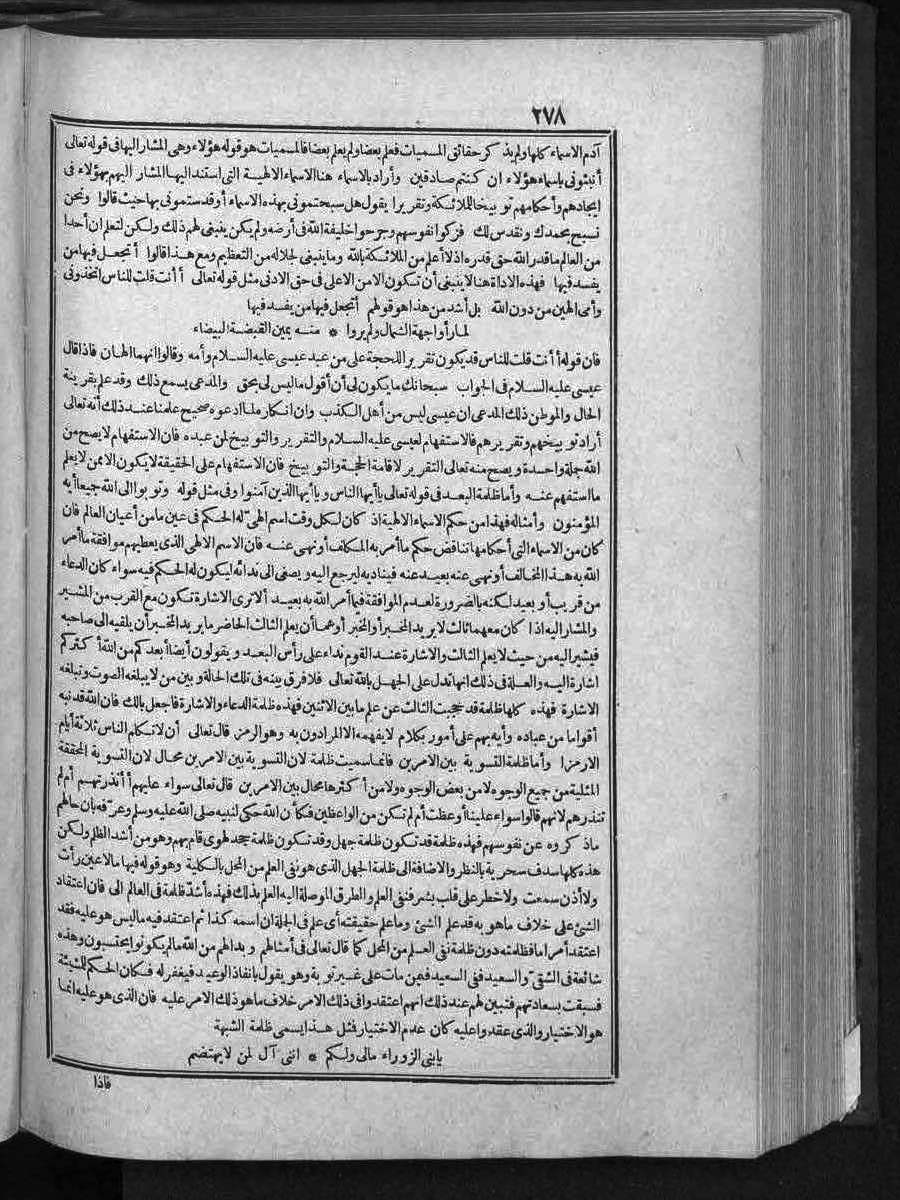 ٢٧٨
آدم الاسماء كلها ولم يذكر حقائق المسميات فعلم بعضا ولم يعلم بعضا فالمسميات هو قوله هؤلاء وهى المشار اليها فى قوله تعالى
أنبئونى باسماء هؤلاء ان كنتم صادقين وأراد بالاسماء هنا الاسماء الالهية التى استند اليها المشار اليهم بهؤلاء فى
ايجادهم وأحكامهم توبيخا للملائكة وتقريرا يقول هل سبحتمونى بهذه الاسماء أو قدستمونى بها حيث قالوا ونحن
نسبح بحمدك ونقدس لك فزكوا نفوسهم وجرحوا خليفة الله فى أرضه ولم يكن ينبغى لهم ذلك ولكن لتعلم ان أحدا
من العالم ما قدر الله حق قدره اذ لا أعلم من الملائكة بالله وما ينبغى لجلاله من التعظيم ومع هذا قالوا أتجعل فيها من
يفسد فيها فهذه الاداة هنا لا ينبغى أن تكون الا من الاعلى فى حق الادنى مثل قوله تعالى أأنت قلت للناس اتخذونى
وأمى الهين من دون الله بل أشد من هذا هو قولهم أتجعل فيها من يفسد فيها
لما رأوا جهة الشمال ولم يروا * منه يمين القبضة البيضاء
فان قوله أأنت قلت للناس قد يكون تقرير اللحجة على من عبد عيسى عليه السلام وأمه وقالوا انهما الهان فاذا قال
عيسى عليه السلام فى الجواب سبحانك ما يكون لى أن أقول ما ليس لى بحق والمدعى يسمع ذلك وقد علم بقرينة
الحال والموطن ذلك المدعى ان عيسى ليس من أهل الكذب وان انكار ما ادعوه صحيح علمنا عند ذلك أنه تعالى
أراد توبيخهم وتقريرهم فالاستفهام لعيسى عليه السلام والتقرير والتوبيخ لمن عبده فان الاستفهام لا يصح من
الله جملة واحدة ويصح منه تعالى التقرير لاقامة الحجة والتوبيخ فان الاستفهام على الحقيقة لا يكون الا ممن لا يعلم
ما استفهم عنه وأما ظلمة البعد فى قوله تعالى يا أيها الناس ويا أيها الذين آمنوا وفى مثل قوله وتوبوا الى الله جميعا أيه
المؤمنون وأمثاله فهذا من حكم الاسماء الالهية اذ كان لكل وقت اسم الهىّ له الحكم فى عين ما من أعيان العالم فان
كان من الاسماء التى أحكامها تناقض حكم ما أمر به المكلف أو نهى عنه فان الاسم الالهى الذى يعطيهم موافقة ما أمر
الله به هذا المخالف أو نهى عنه بعيد عنه فيناديه ليرجع اليه ويصغى الى ندائه ليكون له الحكم فيه سواء كان الدعاء
من قريب أو بعيد لكنه بالضرورة لعدم الموافقة فيما أمر الله به بعيد ألا ترى الاشارة تكون مع القرب من المشير
والمشار اليه اذا كان معهما ثالث لا يريد المخبر أو المخبر أو هما أن يعلم الثالث الحاضر ما يريد المخبر أن يلقيه الى صاحبه
فيشير اليه من حيث لا يعلم الثالث والاشارة عند القوم نداء على رأس البعد ويقولون أيضا أبعدكم من الله أكثركم
اشارة اليه والعلة فى ذلك انها تدل على الجهل بالله تعالى فلا فرق بينه فى تلك الحالة وبين من لا يبلغه الصوت وتبلغه
الاشارة فهذه كلها ظلمة قد حجبت الثالث عن علم ما بين الاثنين فهذه ظلمة الدعاء والاشارة فاجعل بالك فان الله قد نبه
أقواما من عباده وأيه بهم على أمور بكلام لا يفهمه الا المرادون به وهو الرمز قال تعالى أن لا تكلم الناس ثلاثة أيام
الا رمزا وأما ظلمة التسوية بين الامرين فانما سميت ظلمة لان التسوية بين الامرين محال لان التسوية المحققة
المثلية من جميع الوجوه لا من بعض الوجوه ولا من أكثرها محال بين الامرين قال تعالى سواء عليهم أأنذرتهم أم لم
تنذرهم لانهم قالوا سواء علينا أوعظت أم لم تكن من الواعظين فكأن الله حكى لنبيه صلى الله عليه وسلم وعرّفه بان حالهم
ما ذكروه عن نفوسهم فهذه ظلمة قد تكون ظلمة جهل وقد تكون ظلمة جحد لهوى قام بهم وهو من أشد الظلم ولكن
هذه كلها سدف سحرية بالنظر والاضافة الى ظلمة الجهل الذى هو نفى العلم من المحل بالكلية وهو قوله فيها ما لا عين رأت
ولا أذن سمعت ولا خطر على قلب بشر فنفى العلم والطرق الموصلة اليه العلم بذلك فهذه أشدّ ظلمة فى العالم الى فان اعتقاد
الشئ على خلاف ما هو به قد علم الشئ وما علم حقيقته أى علم فى الجلة ان اسمه كذا ثم اعتقد فيه ما ليس هو عليه فقد
اعتقد أمرا ما فظلمته دون ظلمة نفى العلم من المحل كما قال تعالى فى أمثالهم وبدا لهم من الله ما لم يكونوا يحتسبون وهذه
شائعة فى الشقىّ والسعيد ففى السعيد فيمن مات على غير توبة وهو يقول بانفاذ الوعيد فيغفر له فكان الحكم للمشيئة
فسبقت بسعادتهم فتبين لهم عند ذلك انهم اعتقدوا فى ذلك الامر خلاف ما هو ذلك الامر عليه فان الذى هو عليه انما
هو الاختيار والذى عقدوا عليه كان عدم الاختيار فمثل هذا يسمى ظلمة الشبهة
يا بنى الزوراء مالى ولكم * اننى آل لمن لا يهتضم
فاذا